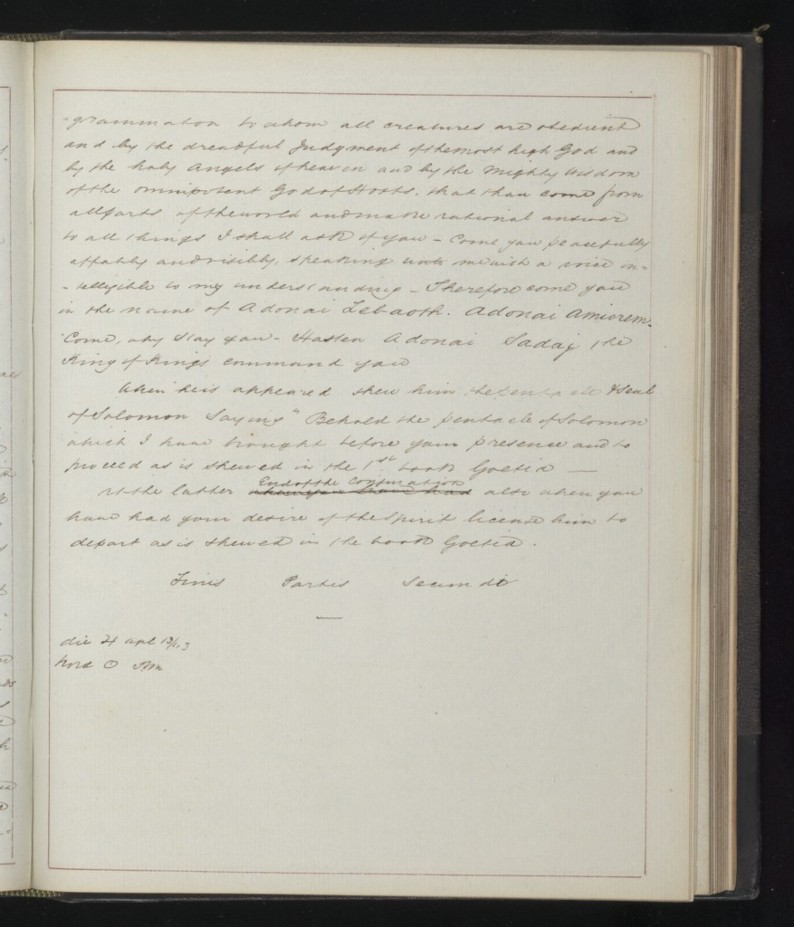 -grammaton to whom all creatures are obedient
and by the dreadful Judgment of the most high God and
by the holy Angels of heaven and by the Mighty wisdom
of the omnipotent God of Hosts. that thou come from
all parts of the world and make rational answer
to all things I shall ask of you - Come you peacefully
affably and visibly, speaking unto me with a voice in-
-telligible to my understanding - Therefore come you
in the name of Adonai Zebaoth. Adonai Amiorem.
Come, why stay you - Hasten Adonai Sadaj the
King of Kings command you
When he is appeared shew him the pentacle & Seal
of Solomon Saying "Behold the pentacle of Solomon
which I have brought before your presence and to
proceed as is shewed in the 1st book Goetia —
at the latter End of the Conjuration also when you
have had your desire of the Spirit license him to
depart as is shewed in the book Goetia.
Finis Partes Secundi
die 4 apl
hora